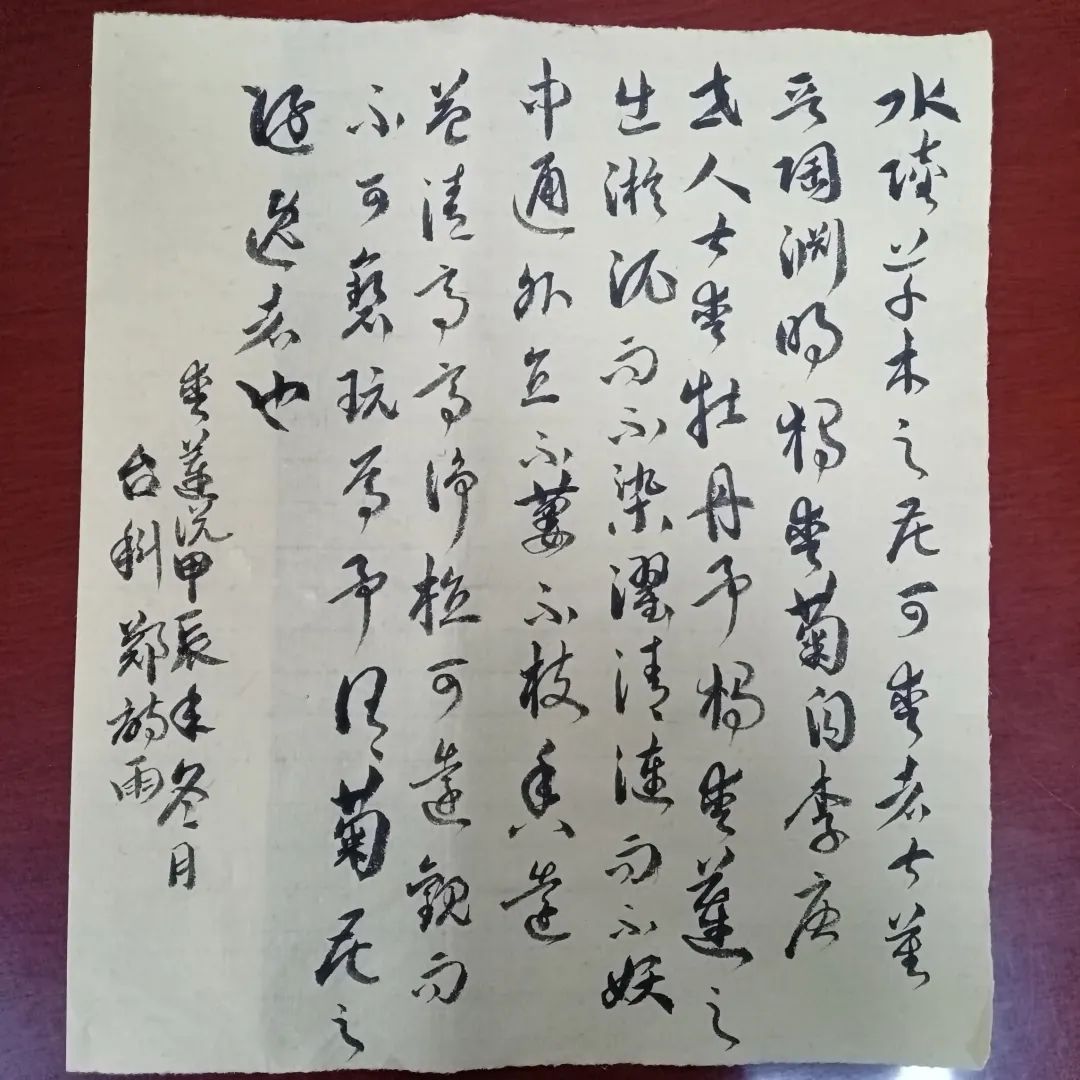 水陸草木之花可愛者甚蕃
晉陶淵明獨愛菊自李唐
世人甚愛牡丹予獨愛蓮之
出淤泥而不染濯清漣而不妖
中通外直不蔓不枝香遠
益清亭亭淨植可遠觀而
不可褻玩焉予謂菊花之
隱逸者也
愛蓮説甲辰年冬月
台科鄭詩雨